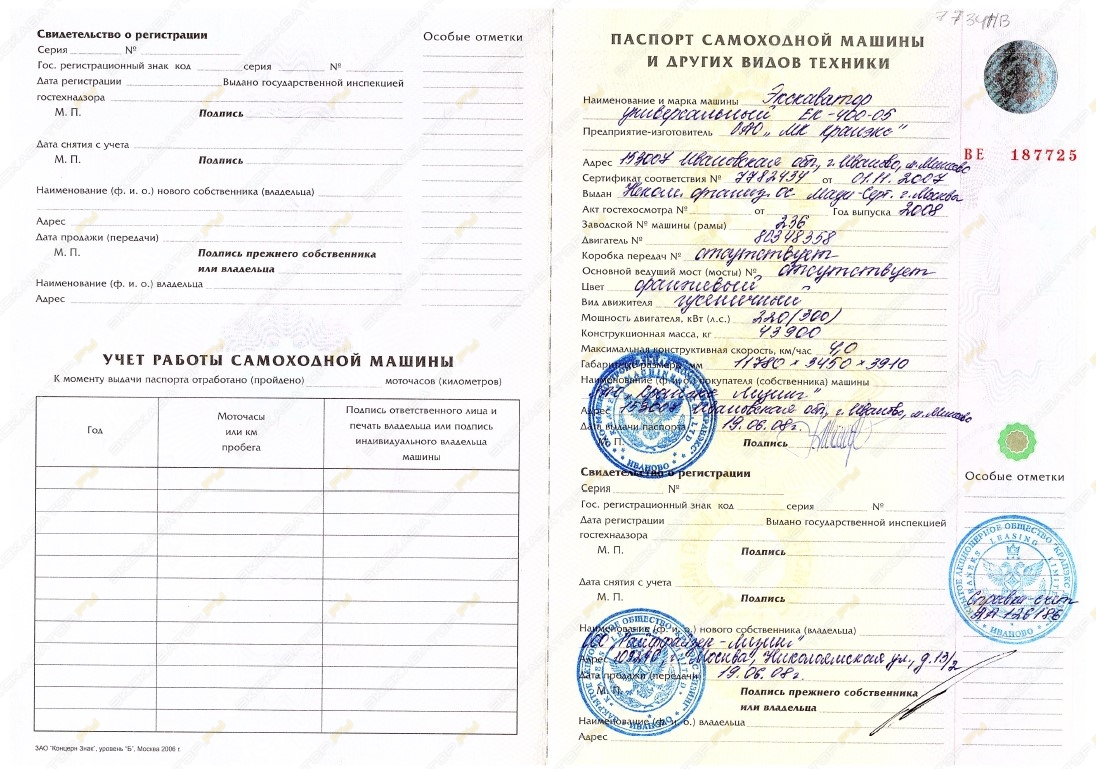 Свидетельство о регистрации
Особые отметки
Серия № 
Гос. регистрационный знак код серия №
Дата регистрации Выдано государственной инспекцией
гостехнадзора
М. П. Подпись
Дата снятия с учета
М. П. Подпись
Наименование (ф. и. о.) нового собственника (владельца)
Адрес
Дата продажи (передачи)
М. П. Подпись прежнего собственника
или владельца
Наименование (ф. и. о.) владельца
Адрес
УЧЕТ РАБОТЫ САМОХОДНОЙ МАШИНЫ
К моменту выдачи паспорта отработано (пройдено) моточасов (километров)
Год
Моточасы
или км
пробега
Подпись ответственного лица и
печать владельца или подпись
индивидуального владельца
машины
ЗАО "Концерн Знак", уровень "Б", Москва 2006 г.
ПАСПОРТ САМОХОДНОЙ МАШИНЫ
И ДРУГИХ ВИДОВ ТЕХНИКИ
Наименование и марка машины Экскаватор
универсальный ЕК-400-05
Предприятие-изготовитель ОАО „МК Кранэкс"
ВЕ 187725
Адрес 153007 Ивановская обл, г. Иваново, м. Минеево
Сертификат соответствия № 7782434 от 01.11.2007
Выдан Неком. организ. ос Мади-Серт. г. Москва
Акт гостехосмотра № от Год выпуска 2008
Заводской № машины (рамы) 236
Двигатель № 80348358
Коробка передач № отсутствует
Основной ведущий мост (мосты) № отсутствует
Цвет оранжевый
Вид движителя гусеничный
Мощность двигателя, кВт (л.с.) 220 (300)
Конструкционная масса, кг 43900
Максимальная конструктивная скорость, км/час 4,0
Габаритные размеры, мм 11780 × 3450 × 3910
Наименование (ф. и. о.) покупателя (собственника) машины
Кранэкс Лизинг"
Адрес 153007 Ивановская обл, г. Иваново, м. Минеево
Дата выдачи паспорта 19.06.08г.
М. П. Подпись
ИВАНОВО
Свидетельство о регистрации
Серия №
Особые отметки
Гос. регистрационный знак код серия №
Дата регистрации Выдано государственной инспекцией
гостехнадзора
М. П. Подпись
Дата снятия с учета
М. П. Подпись
ЗАКРЫТОЕ АКЦИОНЕРНОЕ ОБЩЕСТВО "КРАНЭКС
LEASING LIMITED
Справка-счет
АА 126186
ИВАНОВО
Наименование (ф. и. о.) нового собственника (владельца)
ООО „Райффайзен-Лизинг"
Адрес г. Москва, Николоямская ул., д. 13/2
Дата продажи (передачи) 19.06.08г.
М. П. Подпись прежнего собственника
или владельца
ИВАНОВО
Наименование (ф. и. о.) владельца
Адрес